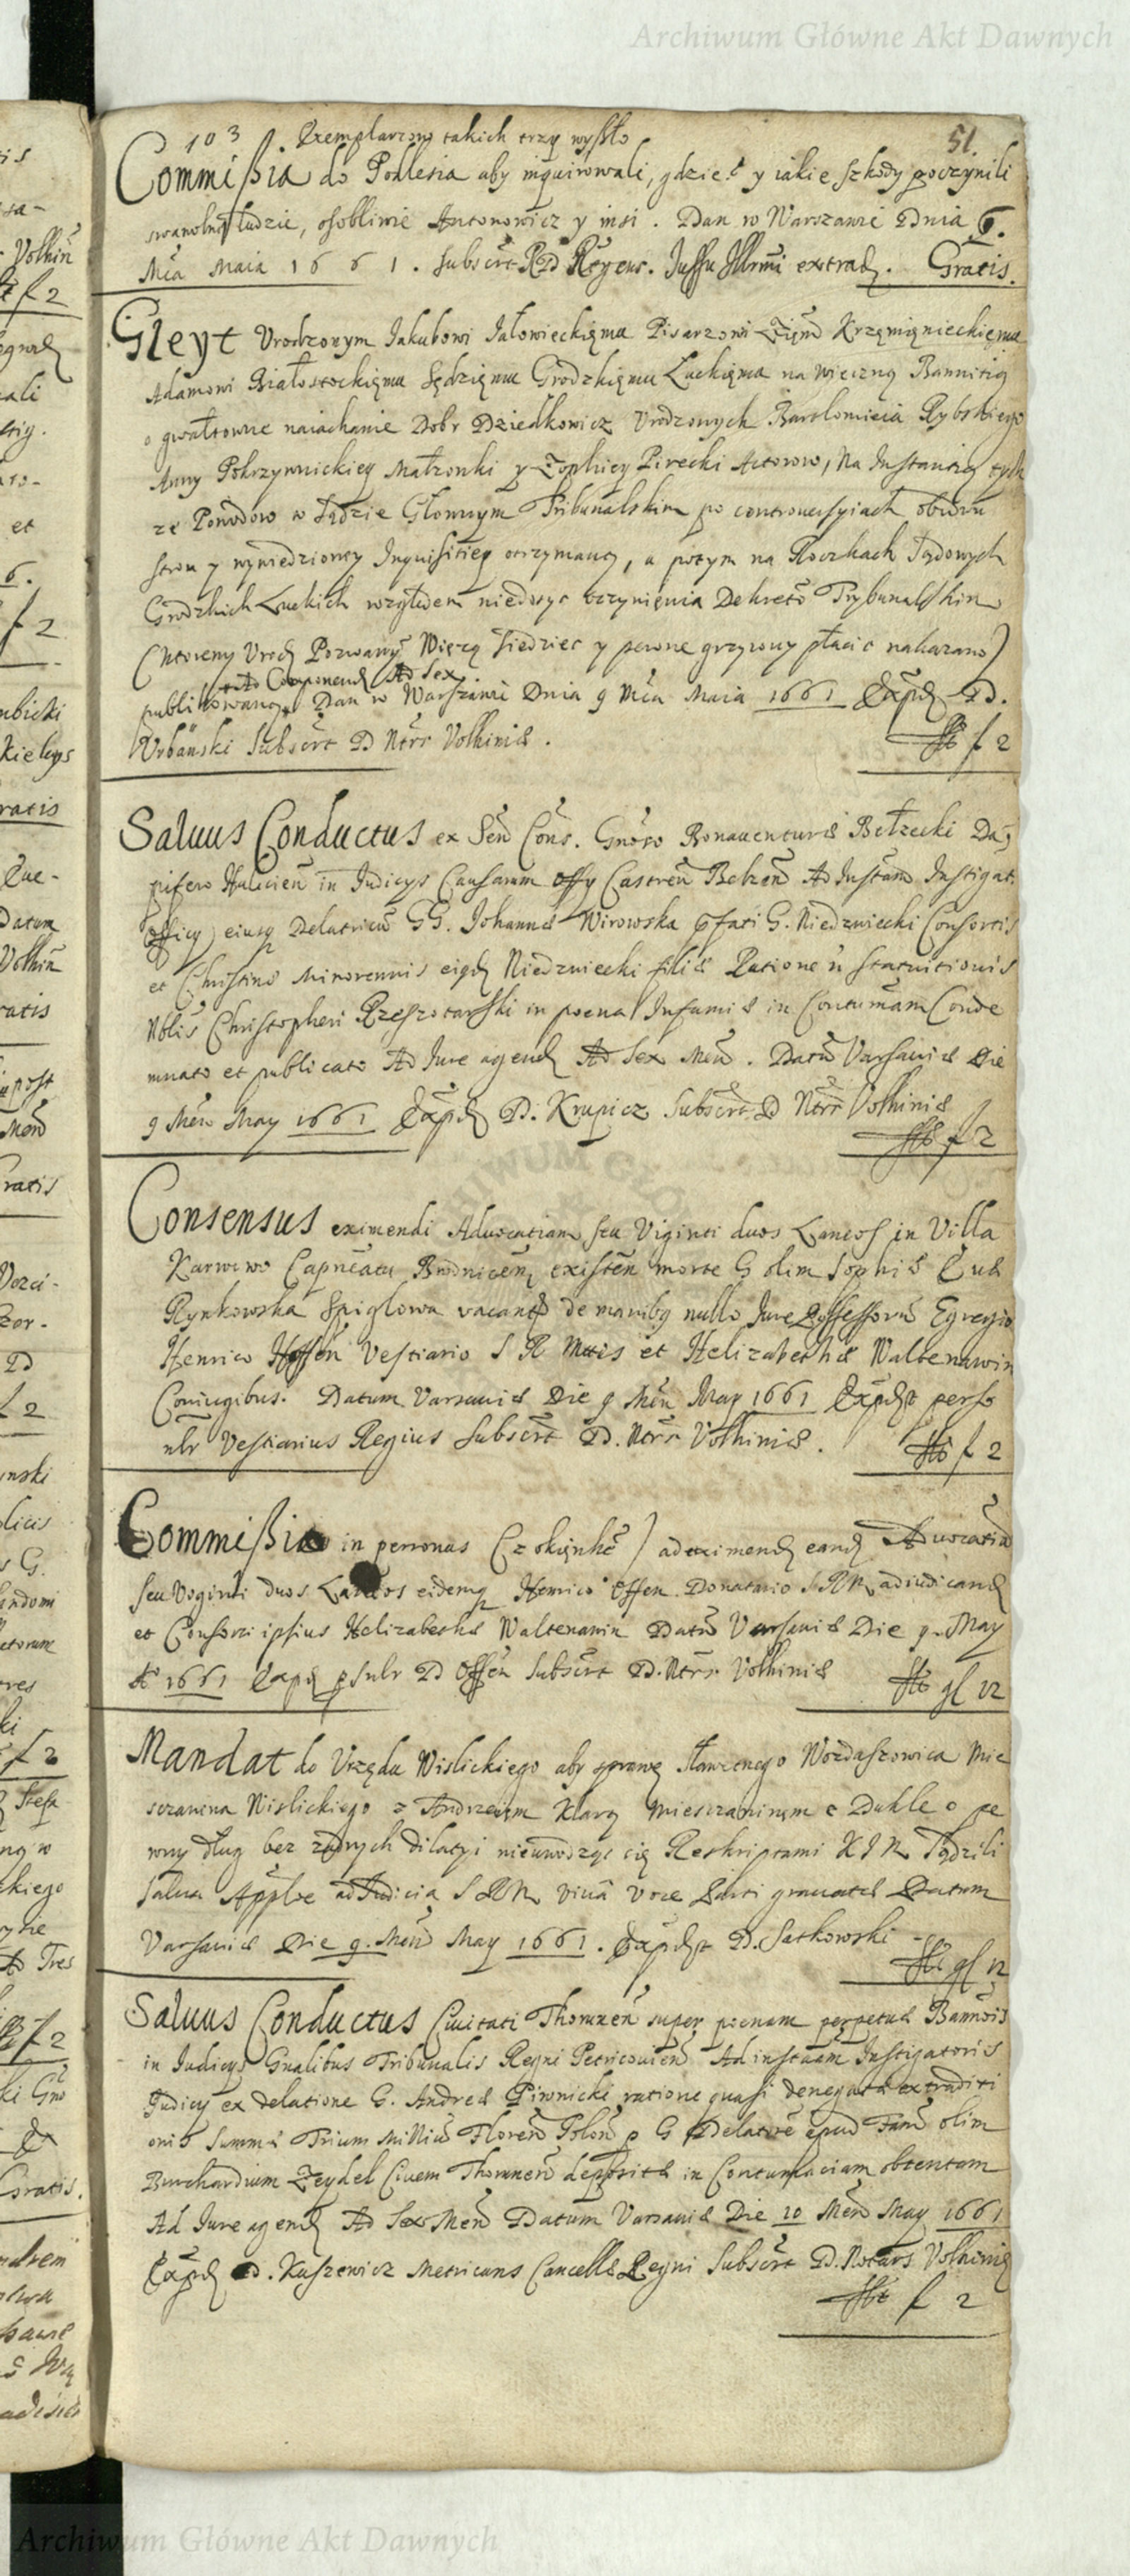 Archiwum Główne Akt Dawnych
103 Exemplarzow takich trzy wyszło
51.
Commißia do Podlesia aby inquirowali, gdzie y iakie szkody poczynili
swawolni ludzie, osobliwie Antonowicz y insi. Dan w Warszawie Dnia 6.
Mca Maia 1661. Subscrt RD Regens. Jussu Illrmi extrad. Gratis.
Gleyt Vrodzonym Jakubowi Jałowieckięmu Pisarzowi Ziem Krzęmięnieckięmu
Adamowi Białostockięmu Sędzięmu Grodzkięmu Łuckięmu na wieczną Bannitią
o gwałtowne naiachanie Dobr Dziedkowicz Vrodzonych Bartłomieia Rybskiego
Anny Pokrzywnickiey Małżonki y Zophiey Pirecki Actorow, Na Instantią tych
ze Powodow w Sądzie Głownym Tribunalskim po controversyiach obudwu
stron y wywiedzioney Inquisitiey otrzymaną, a potym na Roczkach Sądowych
Grodzkich Łuckich względem niedosyc vczynięnia Dekreto Trybunalskim
(ktoremy Vrodz Pozwany Wieżą siedziec y pewne grzywny płacic nakazano)
Ad Componend Ad Sex
publikowaną. Dan w Warszawie Dnia 9 Mca Maia 1661 Expd D.
Vrbański Subscrt D Ntrs Volhiniæ.
f 2
Saluus Conductus ex Sen Cons. Gnoso Bonauenturæ Bełzecki Da-
pifero Haliciēn in Judicys Causarum offy Castren Belzen Ad Instam Instigat.
officy eiusq Delatricū GG. Johannæ Wirowska pfati G. Niedzwiecki Consortis
et Christinæ Minorennis eiqd Niedzwiecki filiæ Ratione n statuitionis
Nblis Christopheri Rzeszotarski in poena Infamiæ in Contumam Conde
mnato et publicato Ad Jure agend Ad Sex Men. Datū Varsaviæ Die
9 Men May 1661 Expd D. Krupicz Subscrt D Ntrs Volhiniæ
f 2
Consensus eximendi Aduocatiam seu Viginti duos Laneos in Villa
Karwowo Capneatu Brodnicen existen morte G olim Sophiæ Euæ
Rynkowska Spiglowa vacant de maniby nullo Jure Possessorū Egregio
Henrico Hoffen Vestiario S R Mttis et Helizabethæ Waltenawin
Coniugibus. Datum Varsaviæ Die 9 Men May 1661 Expdt perso
nlr Vestiarius Regius Subscrt D. Ntrs Volhiniæ.
f 2
Commißia in personas (z okięnkē) ad eximend eand Aduocatia
seu Voginti duos Laneos eidemq Henrico Offen Donatario SRM adiudicand
et Consorti ipsius Helizabethæ Waltenawin Datū Varsaviæ Die 9. May
A 1661 Expd psnlr D Offen Subscrt D. Ntrs Volhiniæ
gl 12
Mandat do Vrzędu Wislickiego aby sprawę Sławetnego Wozdaszowica Mie
szczanina Wislickiego z Andrzeięm Klarą Mieszczaninęm z Dukle o pe
wny dług bez zadnych dilatyi nieuwodząc się Reskriptami KJM Sądzili
salua Applne ad Judicia SRM viuā voce Parti grauatæ Datum
Varsaviæ Die 9. Men May 1661. Expdt D. Satkowski
gl 12
Saluus Conductus Ciuitati Thorunen super poenam perpetuæ Bannois
in Judicys Gnalibus Tribunalis Regni Petricouien Ad instaam Instigatoris
Judicy ex delatione G. Andreæ Piwnicki ratione quasi denegatæ extraditi
onis Summæ Trium Milliū Floren Polon p G Delatore apud Fam olim
Burchardum Zeydel Ciuem Thorunen depositæ in Contumaciam obtentam
Ad Jure agend Ad Sex Men Datum Varsaviæ Die 10 Men May 1661
Expd D. Kuszewicz Metricans Cancellæ Regni Subscrt D. Notars Volhiniæ
f 2
Archiwum Główne Akt Dawnych